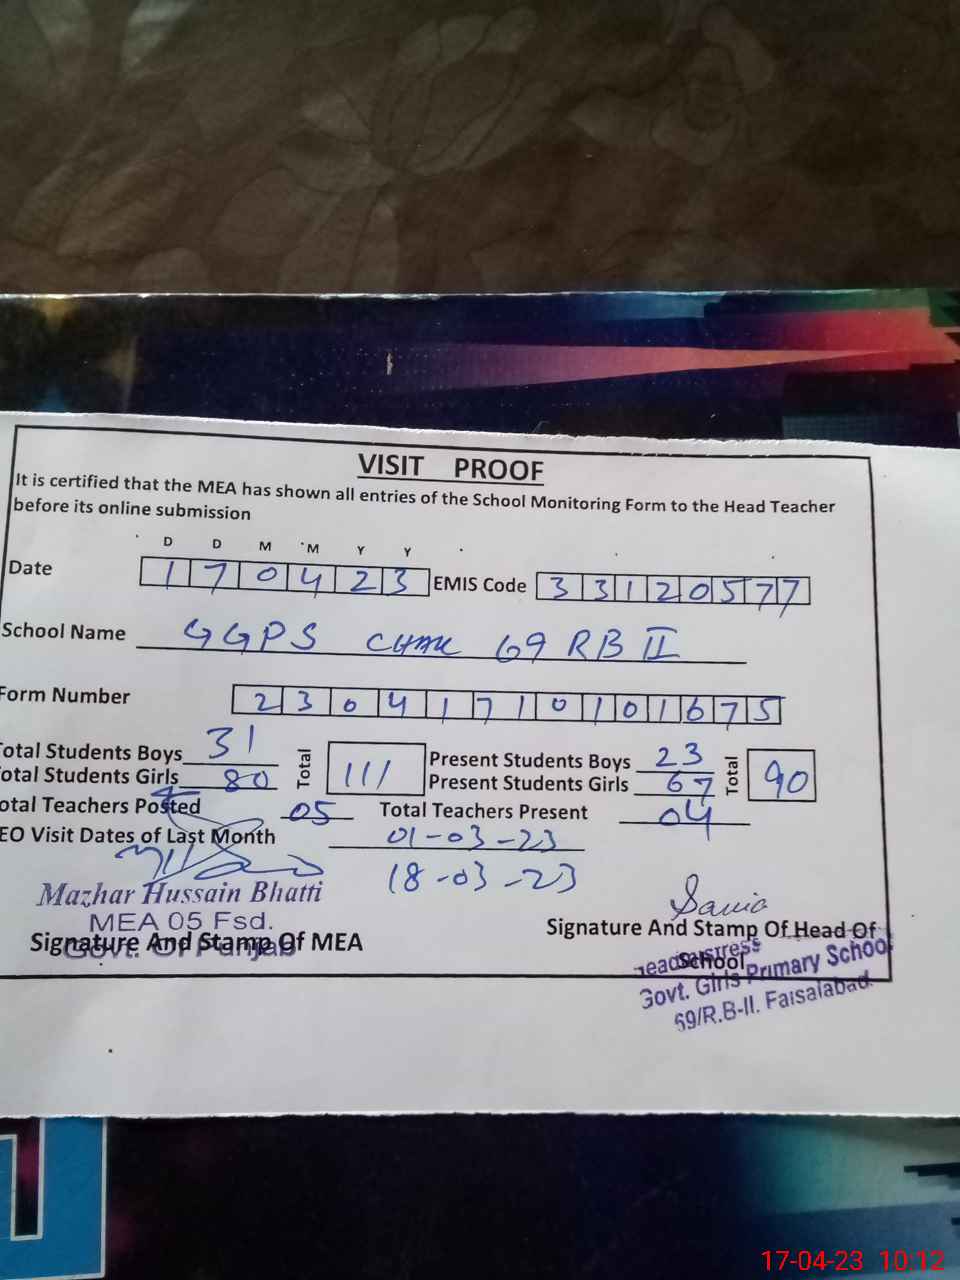 VISIT PROOF
It is certified that the MEA has shown all entries of the School Monitoring Form to the Head Teacher
before its online submission
D D M M Y Y
Date 1 7 0 4 2 3 EMIS Code 3 3 1 2 0 5 7 7
School Name GGPS CHAK 69 RB II
Form Number 2 3 0 4 1 7 1 0 1 0 1 6 7 5
otal Students Boys 31 Total 111 Present Students Boys 23 Total 90
otal Students Girls 80 Present Students Girls 67
otal Teachers Posted 05 Total Teachers Present 04
EO Visit Dates of Last Month 01-03-23
18-03-23
Mazhar Hussain Bhatti
MEA 05 Fsd.
Govt. Of Punjab
Signature And Stamp Of MEA
Sania
Signature And Stamp Of Head Of
School
eadmistress
Govt. Girls Primary School
69/R.B-II. Faisalabad.
17-04-23 10:12